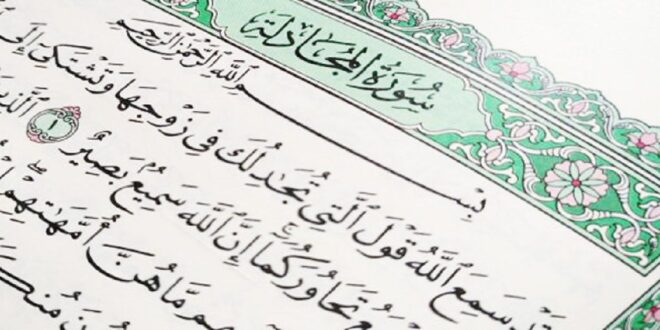 سُورَةُ المُجَادلَةِ
بِسْمِ ٱللَّهِ ٱلرَّحْمَٰنِ ٱلرَّحِيمِ
سَمِعَ ٱللَّهُ قَوْلَ ٱلَّتِي تُجَٰدِلُكَ فِي زَوْجِهَا وَتَشْتَكِيٓ إِلَى
تَحَاوُرَكُمَآ إِنَّ ٱللَّهَ سَمِيعٌۢ بَصِيرٌ ١
مَّا هُنَّ أُمَّهَٰتِهِمْ